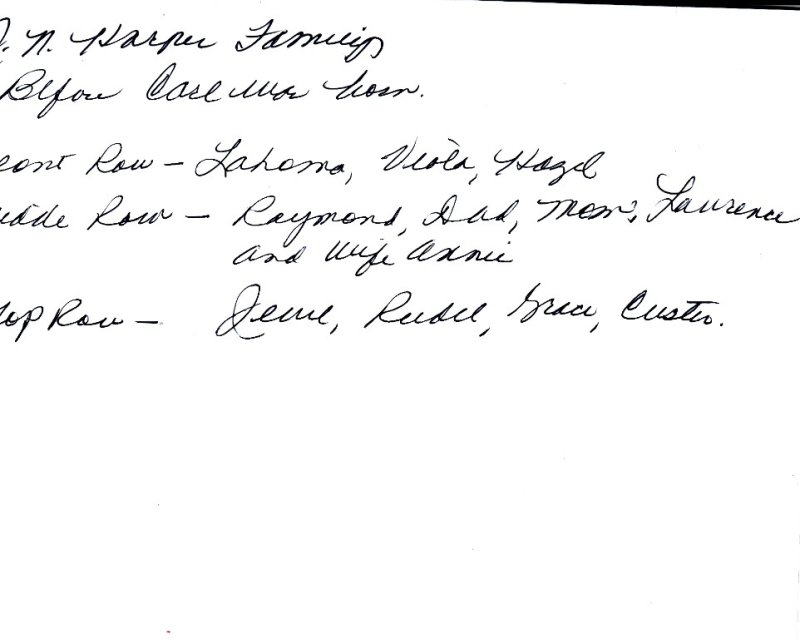 . N. Harper Family
Before Carl was born.
ront Row - Lahoma, Viola, Hazel
iddle Row - Raymond, Dad, Mom, Lawrence
and Wife Annie
Top Row - Grace, Custer.